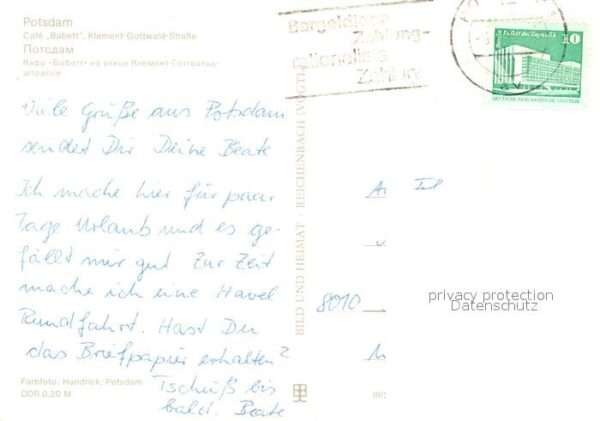 Potsdam
Café „Babett“, Klement-Gottwald-Straße
Потсдам
Кафе «Бабетт» на улице Клемент-Готвальд-
штрассе
Viele Grüße aus Potsdam
sendet Dir Deine Beate
Ich mache hier für paar
Tage Urlaub und es ge-
fällt mir gut. Zur Zeit
mache ich eine Havel
Rundfahrt. Hast Du
das Briefpapier erhalten?
Tschüß bis
bald. Beate
Farbfoto: Handrick, Potsdam
DDR 0,20 M
BILD UND HEIMAT · REICHENBACH (VOGTL
Bargeldlose
Zahlung-
rationellste
Zahlung
Berlin, Palast der Republik
10
DEUTSCHE DEMOKRATISCHE REPUBLIK
8010
privacy protection
Datenschutz